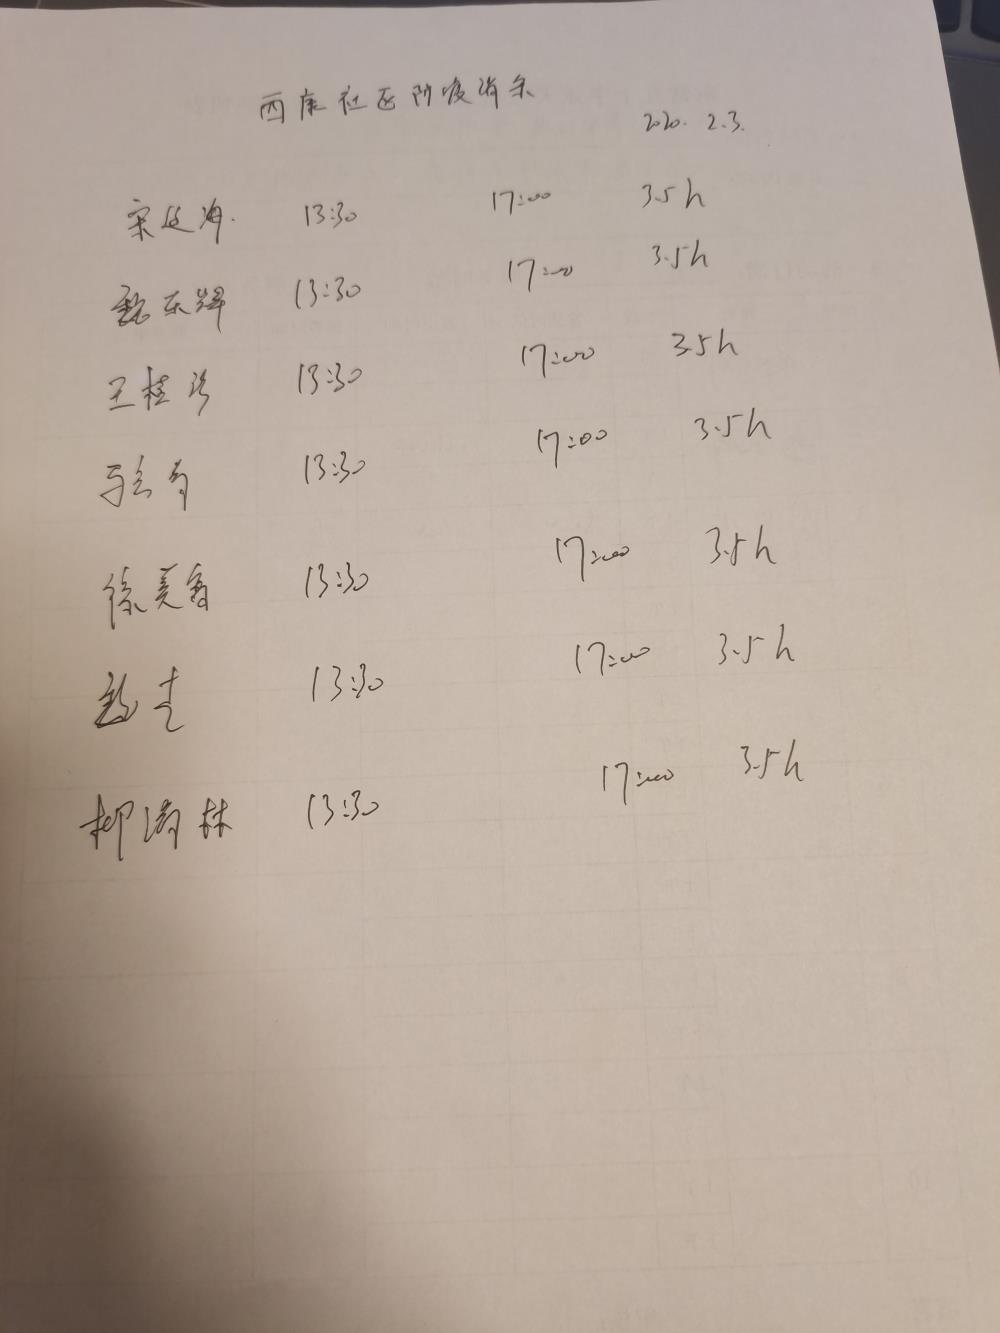 西康社区防疫消杀
2020. 2.3.
宋延海. 13:30 17:00 3.5h
魏东辉 13:30 17:00 3.5h
王桂 13:30 17:00 3.5h
13:30 17:00 3.5h
徐美香 13:30 17:00 3.5h
13:30 17:00 3.5h
柳海林 13:30 17:00 3.5h